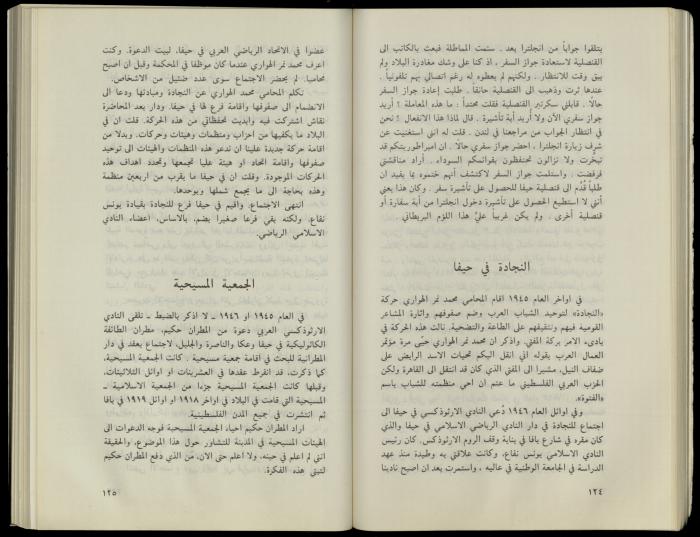 يتلقوا جواباً من انجلترا بعد . سئمت المماطلة فبعث بالكاتب الى
القنصلية لاستعادة جواز السفر ، اذ كنا على وشك مغادرة البلاد ولم
يبق وقت للانتظار . ولكنهم لم يعطوه له رغم اتصالي بهم تلفونياً .
عندها ثرت وذهبت الى القنصلية حانقا . طلبت إعادة جواز السفر
حالاً . قابلني سكرتير القنصلية فقلت محتداً : ما هذه المعاملة ؟ أريد
جواز سفري الآن ولا أريد أية تأشيرة . قال لماذا هذا الانفعال ! نحن
في انتظار الجواب من مراجعنا في لندن . قلت له انني استغنيت عن
شرف زيارة انجلترا ، احضر جواز سفري حالا . ان امبراطوريتكم قد
تبخّرت ولا تزالون تحتفظون بقوائمكم السوداء . أراد مناقشتي
فرفضت . واستلمت جواز السفر لاكتشف أنهم ختموه بما يفيد ان
طلباً قُدّم الى قنصلية حيفا للحصول على تأشيرة سفر . وكان هذا يعني
أنني لا استطيع الحصول على تأشيرة دخول انجلترا من أية سفارة أو
قنصلية أخرى . ولم يكن غريباً عليّ هذا اللؤم البريطاني .
النجادة في حيفا
في اواخر العام ١٩٤٥ اقام المحامي محمد نمر الهواري حركة
«النجادة» لتوحيد الشباب العرب وضم صفوفهم واثارة المشاعر
القومية فيهم وتثقيفهم على الطاعة والتضحية. نالت هذه الحركة في
بادىء الامر بركة المفتي. واذكر ان محمد نمر الهواري حيّى مرة مؤتمر
العمال العرب بقوله اني انقل اليكم تحيات الاسد الرابض على
ضفاف النيل، مشيرا الى المفتي الذي كان قد انتقل الى القاهرة ولكن
الحزب العربي الفلسطيني ما عتم ان احيى منظمته للشباب باسم
«الفتوة».
وفي اوائل العام ١٩٤٦ دُعي النادي الارثوذكسي في حيفا الى
اجتماع للنجادة في دار النادي الرياضي الاسلامي في حيفا والذي
كان مقره في شارع يافا في بناية وقف الروم الارثوذكس. كان رئيس
النادي الاسلامي يونس نفاع، وكانت علاقتي به وطيدة منذ عهد
الدراسة في الجامعة الوطنية في عاليه ، واستمرت بعد ان اصبح نادينا
١٢٤
عضوا في الاتحاد الرياضي العربي في حيفا، لبيت الدعوة. وكنت
اعرف محمد نمر الهواري عندما كان موظفا في المحكمة وقبل ان اصبح
محاميا. لم يحضر الاجتماع سوى عدد ضئيل من الاشخاص.
تكلم المحامي محمد الهواري عن النجادة ومبادئها ودعا الى
الانضمام الى صفوفها واقامة فرع لها في حيفا. ودار بعد المحاضرة
نقاش اشتركت فيه وابديت تحفظاتي من هذه الحركة. قلت ان في
البلاد ما يكفيها من احزاب ومنظمات وهيئات وحركات. وبدلا من
اقامة حركة جديدة علينا ان ندعو هذه المنظمات والهيئات الى توحيد
صفوفها واقامة اتحاد او هيئة عليا تجمعها وتحدد اهداف هذه
الحركات الموجودة. وقلت ان في حيفا ما يقرب من اربعين منظمة
وهذه بحاجة الى ما يجمع شملها ويوحدها.
انتهى الاجتماع، واقيم في حيفا فرع للنجادة بقيادة يونس
نفاع، ولكنه بقي فرعا صغيرا يضم، بالاساس، اعضاء النادي
الاسلامي الرياضي.
الجمعية المسيحية
في العام ١٩٤٥ او ١٩٤٦ ـ لا اذكر بالضبط ـ تلقى النادي
الارثوذكسي العربي دعوة من المطران حكيم، مطران الطائفة
الكاثوليكية في حيفا وعكا والناصرة والجليل، لاجتماع يعقد في دار
المطرانية للبحث في اقامة جمعية مسيحية . كانت الجمعية المسيحية،
كما ذكرت، قد انفرط عقدها في العشرينات او اوائل الثلاثينات،
وقبلها كانت الجمعية المسيحية جزءا من الجمعية الاسلامية ـ
المسيحية التي قامت في البلاد في اواخر ١٩١٨ او اوائل ١٩١٩ في يافا
ثم انتشرت في جميع المدن الفلسطينية.
اراد المطران حكيم احياء الجمعية المسيحية فوجه الدعوات الى
الهيئات المسيحية في المدينة للتشاور حول هذا الموضوع، والحقيقة
انني لم اعلم في حينه، ولا اعلم حتى الان، من الذي دفع المطران حكيم
لتبني هذه الفكرة.
١٢٥